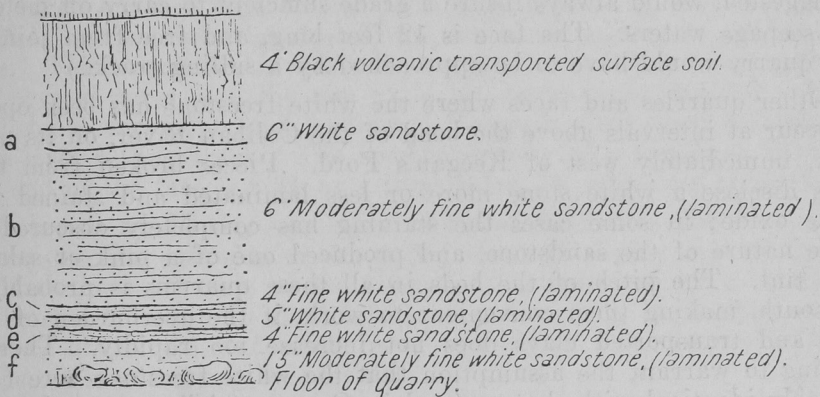 4' Black volcanic transported surface soil.
a 6" White sandstone.
b 6' Moderately fine white sandstone, (laminated).
c 4" Fine white sandstone, (laminated).
d 5" White sandstone, (laminated).
e 4" Fine white sandstone, (laminated).
f 1'5" Moderately fine white sandstone, (laminated).
Floor of Quarry.